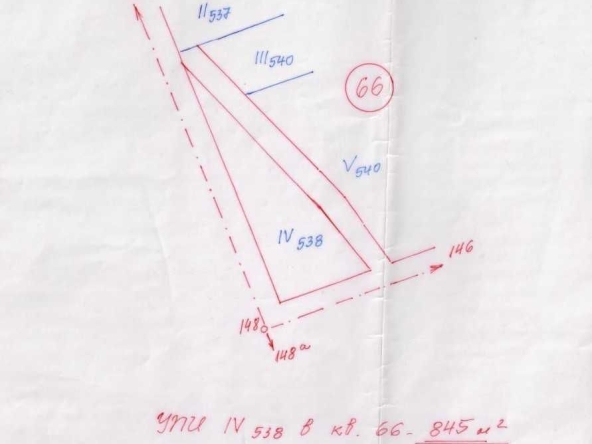 II 537
III 540
66
V 540
IV 538
146
148
148а
УПИ IV 538 в кв. 66 - 845 м²